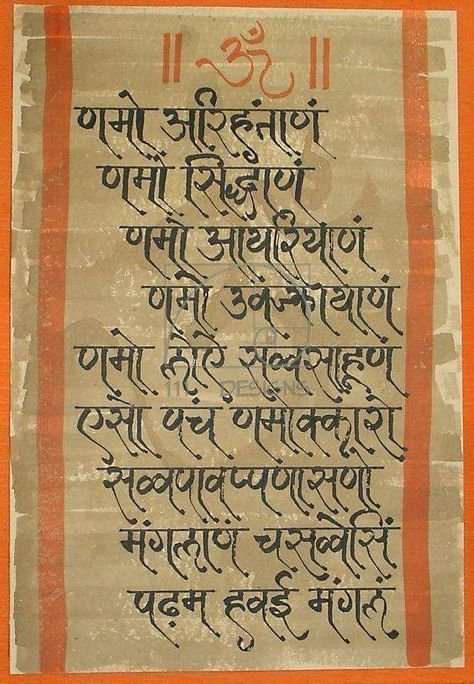 ॥ ॐ ॥
णमो अरिहंताणं
णमो सिद्धाणं
णमो आयरियाणं
णमो उवज्झायाणं
णमो लोए सव्वसाहूणं
DESIGNS
एसो पंच णमोक्कारो
सव्वपावप्पणासणो
मंगलाणं चसव्वेसिं
पढम हवई मंगलं